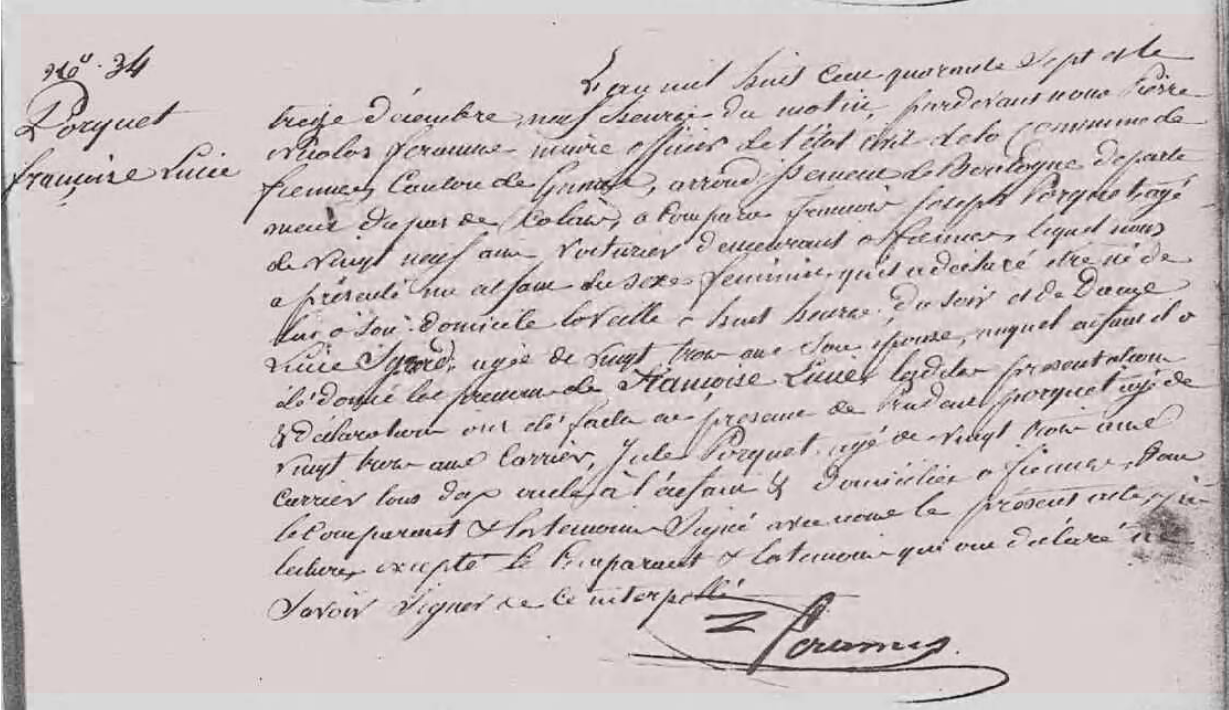 No. 34
Porquet
françoise Lucie
L'an mil huit cent quarante Sept et le
treize décembre, neuf heures du matin, pardevant nous Pierre
Nicolas maire officier de l'état civil de la commune de
fiennes, Canton de Guines, arrondissement de Boulogne departe
ment du pas de Calais, a comparu francois Joseph Porquet, agé
de vingt neuf ans voiturier demeurant a fiennes, lequel nous
a présenté un enfant du sexe feminin, qu'il a déclaré etre né de
lui à son domicile la veille a huit heures du soir et de Dame
Lucie agée de vingt trois ans son epouse, auquel enfant il a
été donné les prenoms de Françoise Lucie, lesdites presentation
& déclaration ont été faites en présence de Prudent porquet agé de
vingt trois ans Carrier, Jules Porquet agé de vingt trois ans
Carrier tous deux oncles à l'enfant & domiciliés a fiennes, Dont
le Comparant & les temoins Signé avec nous le présent acte,
lecture, excepté le Comparant & les temoins qui ont déclaré ne
Savoir Signer de ce interpellé